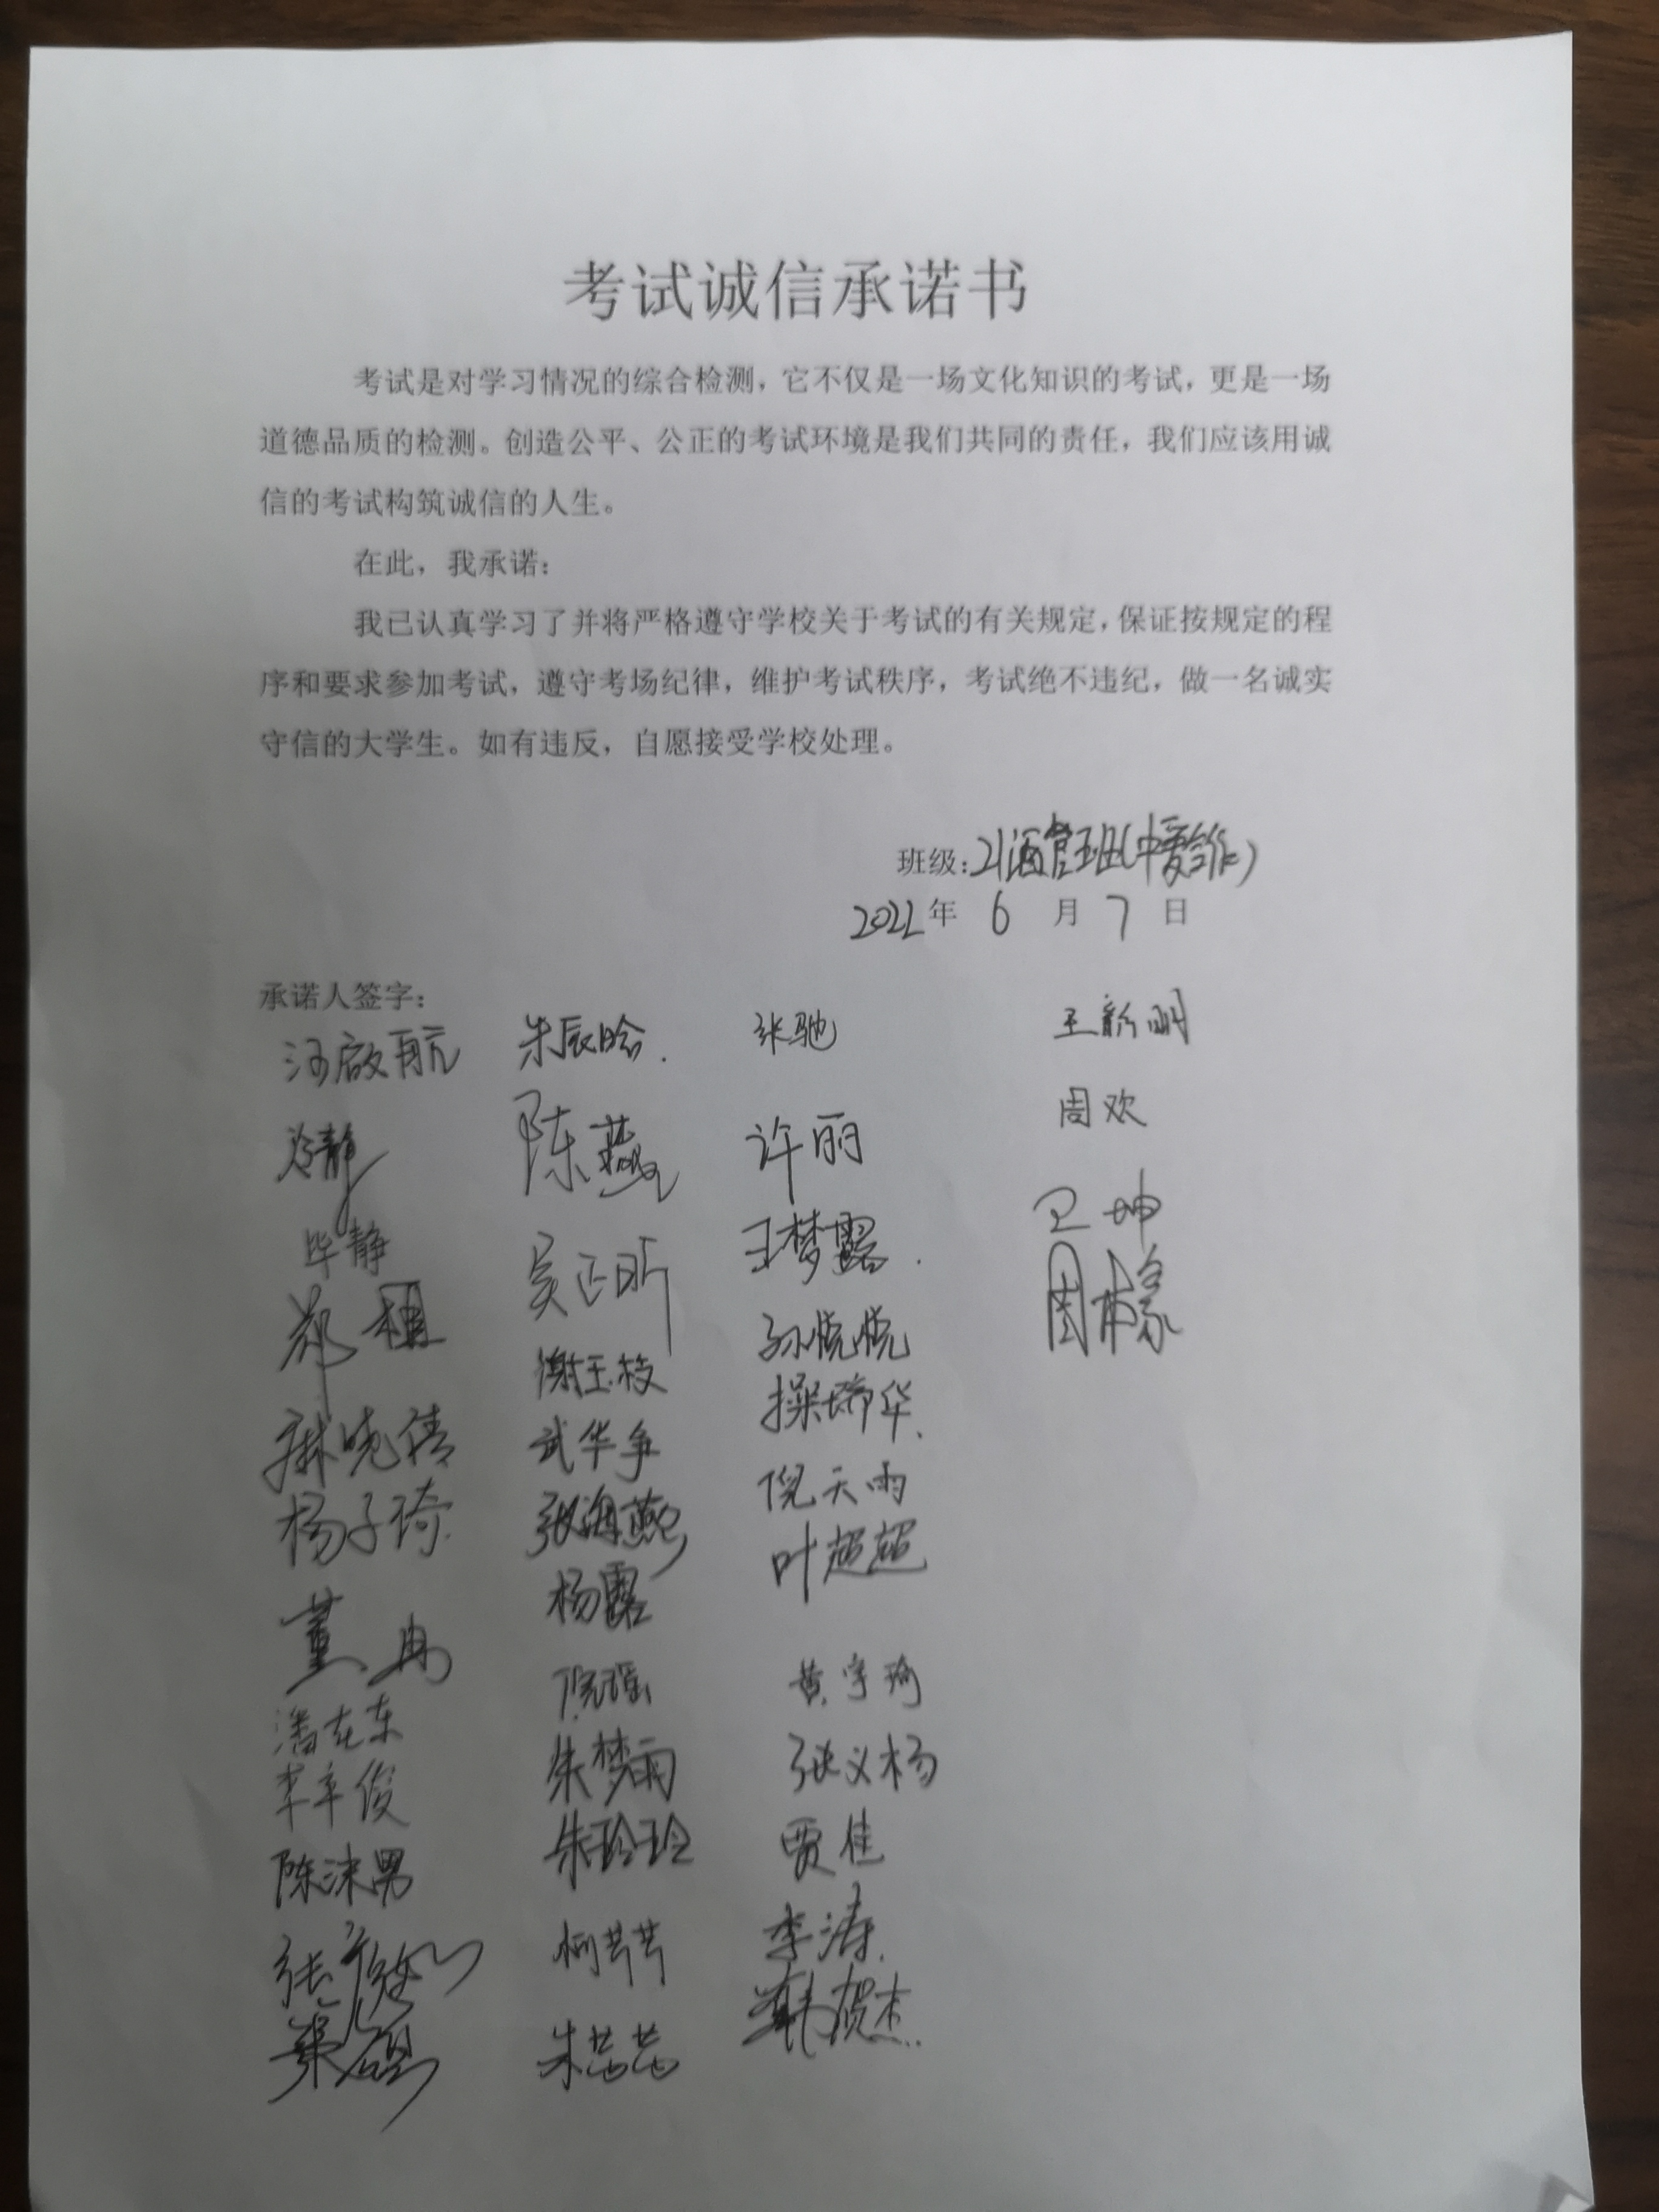 考试诚信承诺书
考试是对学习情况的综合检测，它不仅是一场文化知识的考试，更是一场
道德品质的检测。创造公平、公正的考试环境是我们共同的责任，我们应该用诚
信的考试构筑诚信的人生。
在此，我承诺：
我已认真学习了并将严格遵守学校关于考试的有关规定，保证按规定的程
序和要求参加考试，遵守考场纪律，维护考试秩序，考试绝不违纪，做一名诚实
守信的大学生。如有违反，自愿接受学校处理。
班级：21酒管班(中爱合作)
2022年 6 月 7 日
承诺人签字：
汪启航 朱辰晗 张驰 王新明
冷静 陈燕 许丽 周欢
毕静 吴正昕 王梦露 卫坤
郑植 谢玉枝 孙悦悦 周橡
麻晓倩 武华争 操瑞华
杨子琦 张海燕 倪天雨
董冉 杨露 叶超超
潘在东 倪瑶 黄宇琦
李辛俊 朱梦雨 张义杨
陈沫男 朱玲玲 贾佳
柯芊芊 李涛
朱芸芸 韩贺杰